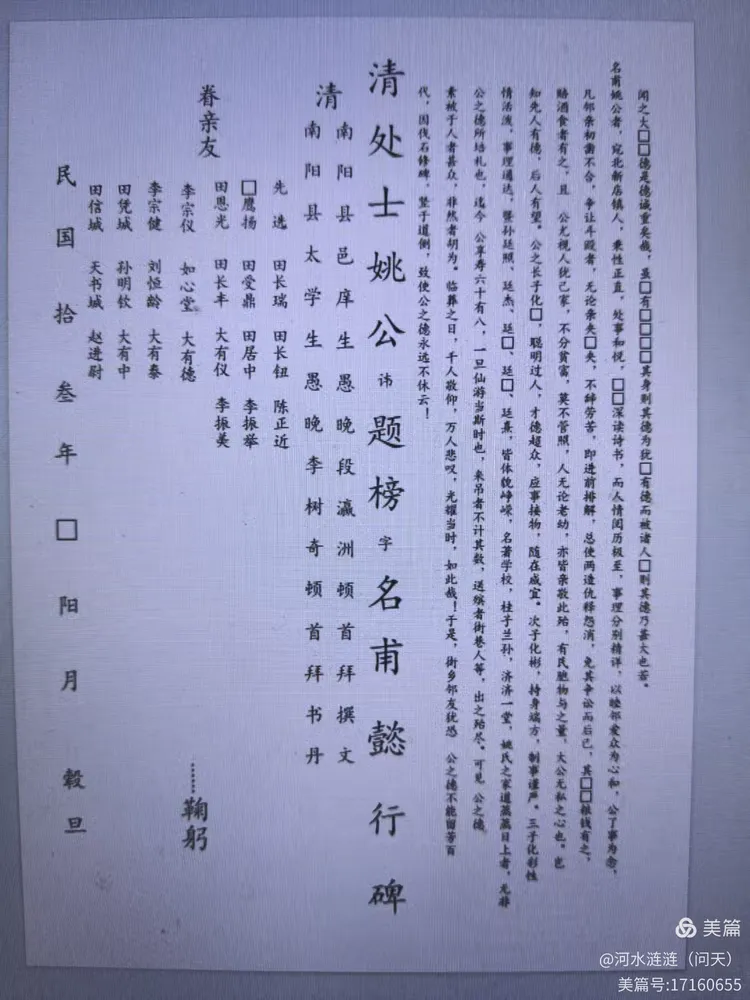 闻之大□□德是德诚重矣哉，虽□有□□□□其身则其德为犹□有德而被诸人□则其德乃甚大也若。
名甫姚公者，宛北新店镇人，秉性正直，处事和悦，□□深读诗书，而人情阅历极至，事理分别精详，以睦邻爱众为心和，公了事为念，
凡邻亲初凿不合，争让斗殴者，无论亲夹□夹，不辞劳苦，即进前排解，总使两造仇释怨消，免其争讼而后己，其□□粮钱有之，
赂酒食者有之，且 公尤视人犹己家，不分贫富，莫不管照，人无论老幼，亦皆亲敬此殆，有民胞物与之量，大公无私之心也。岂
知先人有德，后人有望。公之长子化□，聪明过人，才德超众，应事接物，随在咸宜。次子化彬，持身端方，制事谨严。三子化彩性
情活泼，事理通达，暨孙廷照、廷杰、廷□、廷□、廷熹，皆体貌峥嵘，名著学校，桂子兰孙，济济一堂，姚氏之家道蒸蒸日上者，尤非
公之德所培礼也，迄今 公享寿六十有八，一旦仙游当斯时也，来吊者不计其数，送殡者街巷人等，出之殆尽。可见 公之德
素被于人者甚众，非然者胡为。临葬之日，千人敬仰，万人悲叹，光耀当时，如此哉！于是，街乡邻友犹恐 公之德不能留芳百
代，因伐石修碑，竖于道侧，致使公之德永远不休云！
清处士姚公讳题榜字名甫懿行碑
清
南阳县邑庠生愚晚段瀛洲顿首拜撰文
南阳县太学生愚晚李树奇顿首拜书丹
眷亲友
先选 田长瑞 田长钮 陈正近
□鹰扬 田受鼎 田居中 李振举
田恩光 田长丰 大有仪 李振美
李宗仪 如心堂 大有德
李宗健 刘恒龄 大有泰
田凭城 孙明钦 大有中
田信城 天书城 赵进尉
……鞠躬
民国拾叁年□阳月 穀旦
美篇
@河水涟涟（问天）
美篇号:17160655